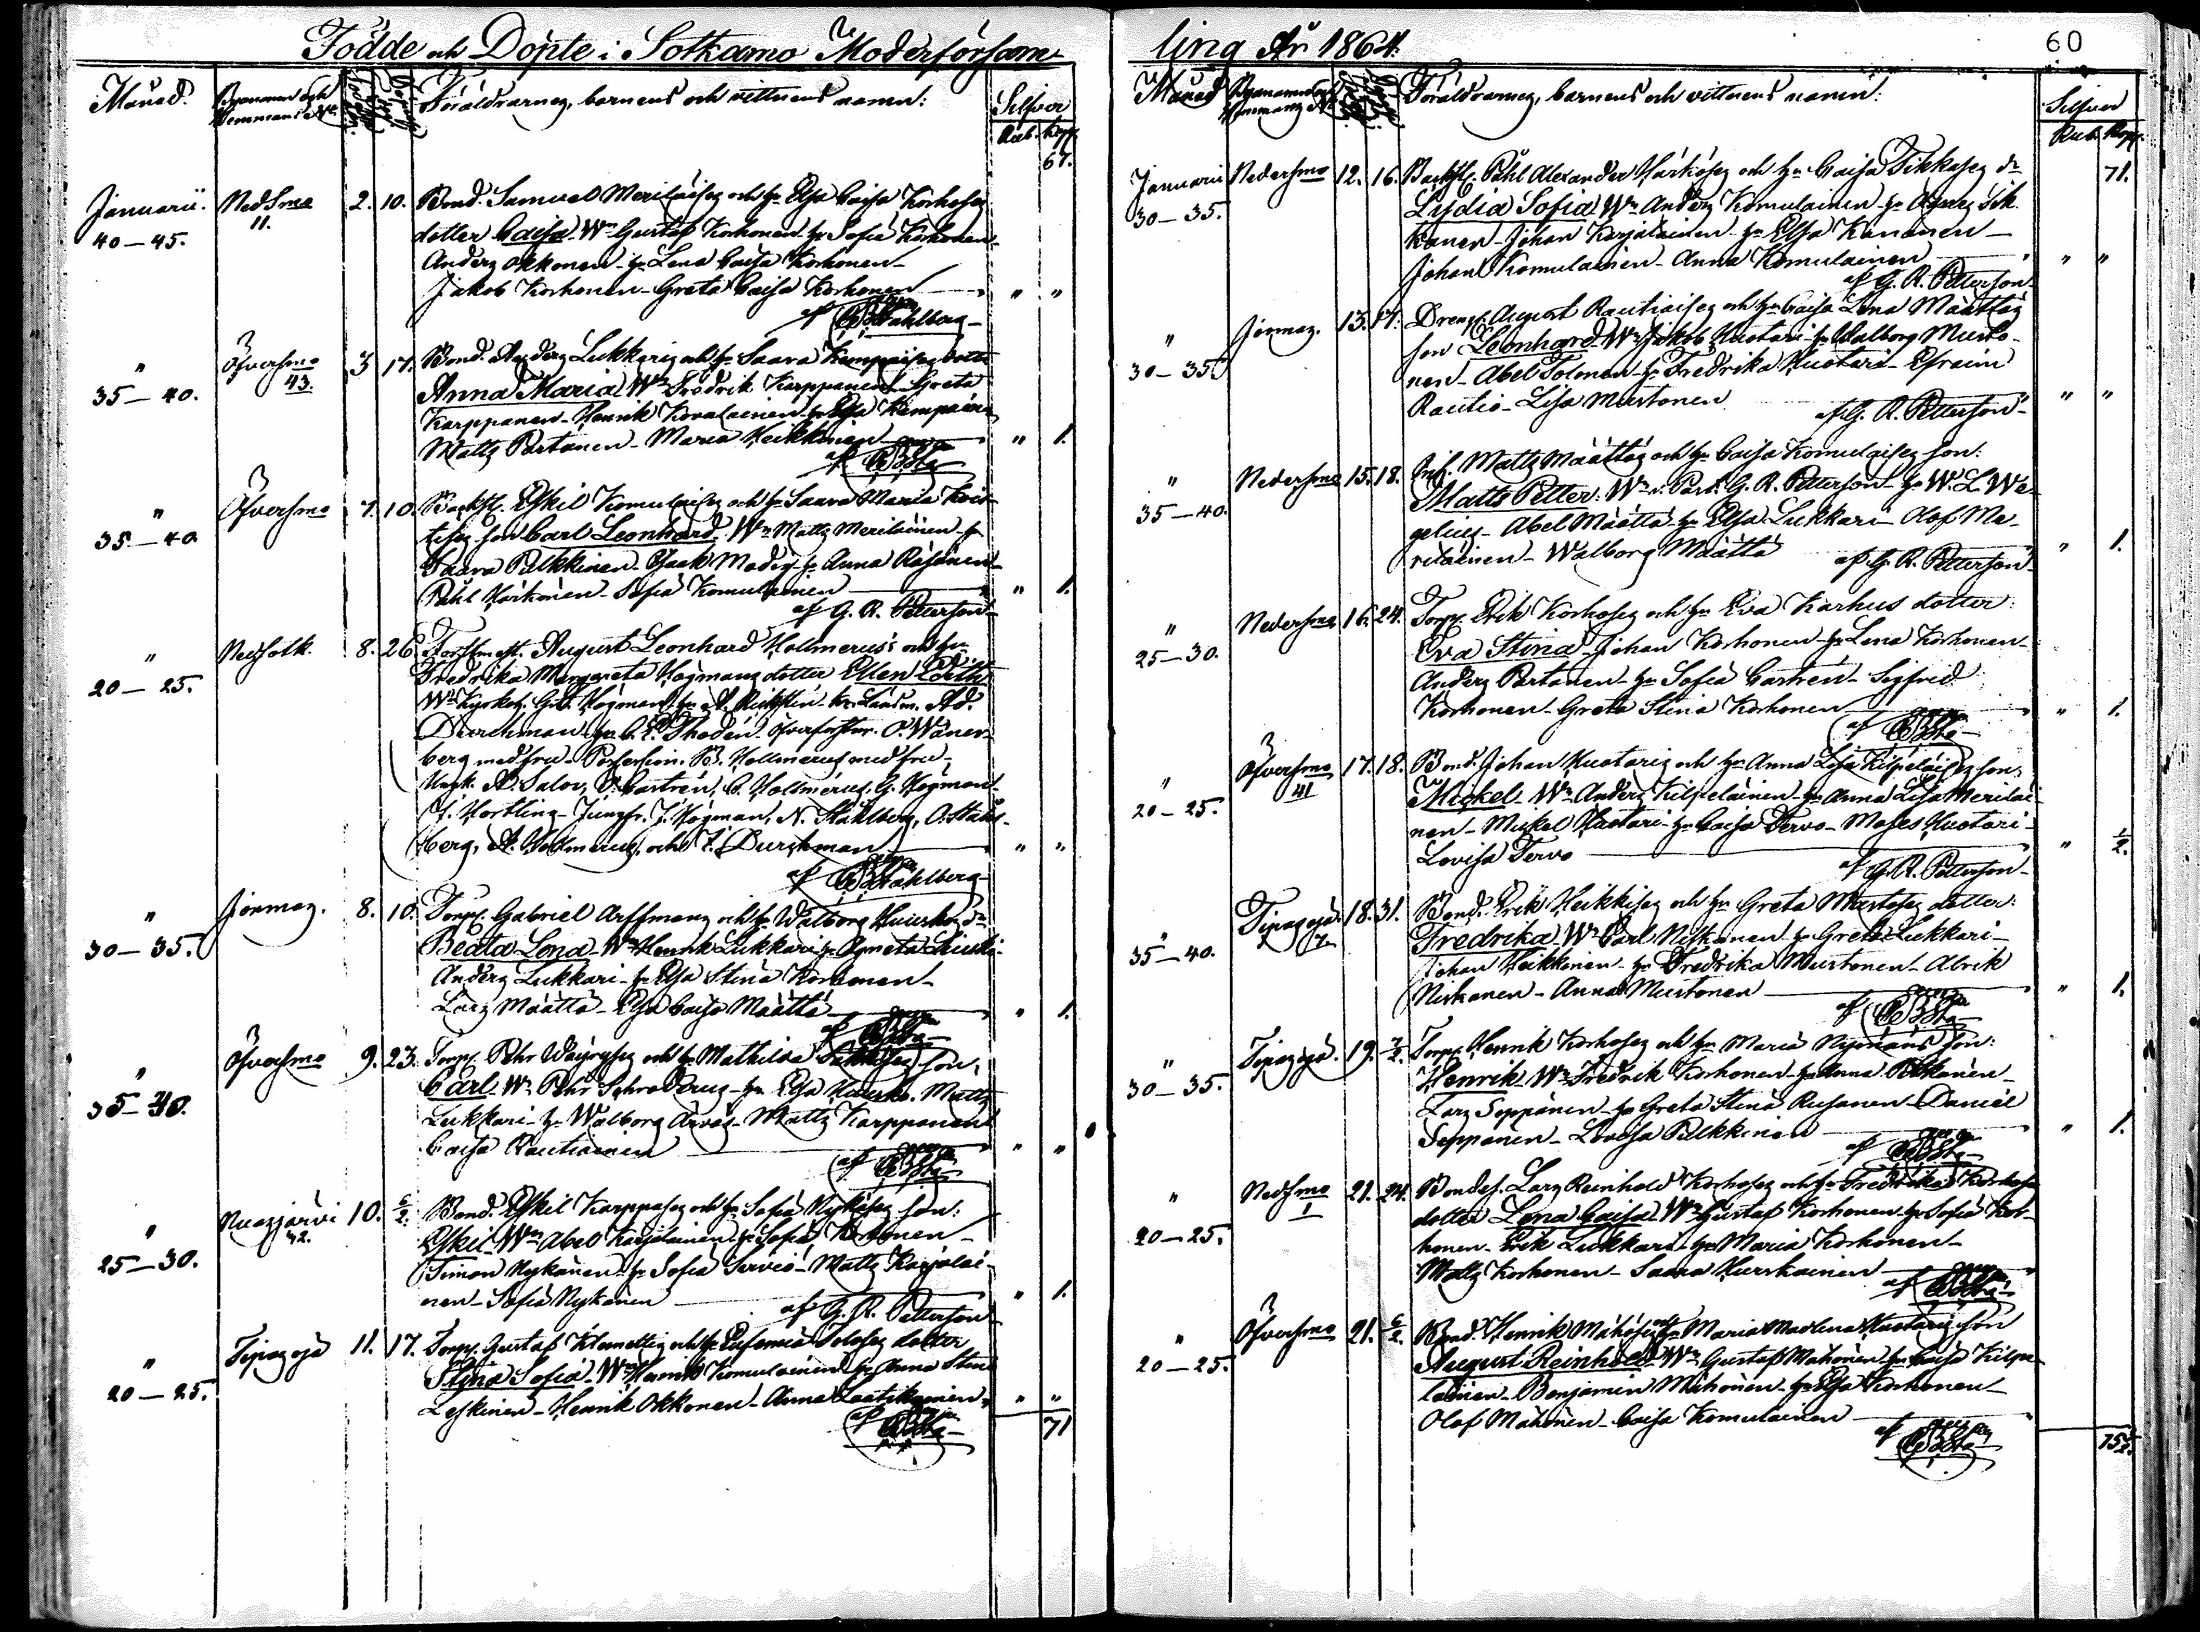 Födde och Döpte i Sotkamo Moderförsam-
Månad. Byanamn och Hemmans № Föräldrarnes, barnens och vittnens namn: Silfver
Rub. Kop.
67.
Januarii. NedSmo 2. 10. Bond. Samuel Meriläises och h. Elsa Caisa Korhoses
40-45. 11. dotter Caisa Wn Gustaf Korhonen h. Sofia Korhonen
Anders Okkonen h. Lena Caisa Korhonen
Jakob Korhonen Greta Caisa Korhonen " "
af Ståhlberg
" Öfversmo 3 17. Bond. Anders Lukkaris och h. Saara Kempaises dotter
35-40. 43. Anna Maria Wn Fredrik Karppanen Greta
Karppanen Henrik Kovalainen h. Elsa Kempainen
Matts Partanen Maria Heikkinen " 1.
af
" Öfversmo 7. 10. Backst. Eskil Komulaises och h. Saara Maria
35-40 son Carl Leonhard Wn Matts Meriläinen h.
Saara Pulkkinen Isaak Moder h. Anna Räsänen
Påhl Härkönen Sofia Komulainen " 1.
af G. R. Petterson
" 8. 26. Forstmest. August Leonhard Holmerus's och h.
20-25. Fredrika Margareta Högmans dotter Ellen Edith
Wn Kyrkoh. Högman Ad.
Durchman h. Thodén. O. Waner-
berg med fru B. Hollmerus med fru
A. Salov, O. Castrén, C. Holmérus, G. Högman
Hortling Jungfr. J. Högman, N. Ståhlberg, O. Ståhl-
berg, A. Hollmerus och Durchman " "
af Ståhlberg
" Jormas. 8. 10. Torp. Gabriel Arffmans och h. Walborg dr
30-35. Beata Lena Wn Henrik Lukkari h.
Anders Lukkari h. Elsa Stina Korhonen
Lars Määttä Elsa Caisa Määttä " 1.
af
" Öfversmo 9. 23. Torp. Pehr och h. Mathilda son,
35-40. Carl Wn Pehr Schroderus h. Elsa Matts
Lukkari h. Walborg Matts Karppanen
Caisa Rautiainen " "
af
" Nuasjärvi 10. 6/2. Bond. Eskil Karppases och h. Sofia Nykäses son:
25-30. 32. Eskil Wn Abel Karjalainen h. Sofia Korhonen
Simon Nykänen h. Sofia Servio Matts Karjalai-
nen Sofia Nykänen " 1.
af G. R. Petterson
" Tipasoja 11. 17. Torp. Gustaf Klemettis och h. Eufemia Toloses dotter
20-25. Stina Sofia Wn Henrik Komulainen h. Anna Stina
Leskinen Henrik Okkonen Anna Laatikainen " "
af 71
ling År 1864. 60
Månad Byanamn och Hemmans № Föräldrarnes, barnens och vittnens namn: Silfver
Rub. Kop.
Januarii Nedersmo 12. 16. Backst. Påhl Alexander Härköses och h. Caisa Tikkases dr 71.
30-35. Lydia Sofia Wn Anders Komulainen h. Agnes Tik-
kanen Johan Karjalainen h. Elsa Kananen
Johan Komulainen Anna Komulainen " "
af G. R. Petterson
" Jormas. 13. 17. Dreng. August Rautiaises och h. Caisa Lena Määttäs
30-35. son Leonhard Wn Jakob Huotari h. Walborg Musto-
nen Abel Tolonen h. Fredrika Huotari Efraim
Rautio Lisa Mustonen " "
af G. R. Petterson
" Nedersmo 15. 18. Inh. Matts Määttäs och h. Caisa Komulaises son:
35-40. Matts Petter. Wn v. Past. G. R. Petterson h. W. L. We-
gelius Abel Määttä h. Elsa Lukkari Olof Me-
riläinen Walborg Määttä " 1.
af G. R. Petterson
" Nedersmo 16. 24. Torp. Erik Korhoses och h. Eva Karhus dotter:
25-30. Eva Stina Johan Korhonen h. Lena Korhonen
Anders Partanen h. Sofia Castrén Sigfrid
Korhonen Greta Stina Korhonen " 1.
af
" Öfversmo 17. 18. Bond. Johan Huotaris och h. Anna Lisa Kilpeläises son,
20-25. 41 Mickel Wn Anders Kilpeläinen h. Anna Lisa Meriläi-
nen Mickel Huotari h. Caisa Tervo Moses Huotari
Lovisa Tervo " 1/2.
af G. R. Petterson
" Tipasoja 18. 31. Bond. Erik Heikkises och h. Greta Mustoses dotter:
35-40. 7. Fredrika Wn Carl Niskanen h. Greta Lukkari
Johan Heikkinen h. Fredrika Mustonen Abrik
Niskanen Anna Mustonen " 1.
af
" Tipasoja. 19. 7/2. Torp. Henrik Korhoses och h. Maria Nymans son:
30-35. Henrik Wn Fredrik Korhonen h. Anna Pulkkinen
Lars Seppänen h. Greta Stina Rusanen Daniel
Seppänen Lovisa Pulkkinen " 1.
af
" NedSmo 21. 24. Bondes. Lars Reinhold Korhoses och h. Fredrika Korhoses
20-25. 1 dotter Lena Caisa Wn Gustaf Korhonen h. Sofia Kor-
honen Erik Lukkari h. Maria Korhonen
Matts Korhonen Saara Hurskainen "
af
" Öfversmo 21. 6/2. Bond. Henrik Mähöses och h. Maria Madlena Huotaris son
20-25. August Reinhold Wn Gustaf Mähönen h. Caisa Kilpe-
läinen Benjamin Mähönen h. Elsa Korhonen
Olof Mähönen Caisa Komulainen "
af 75 1/2.